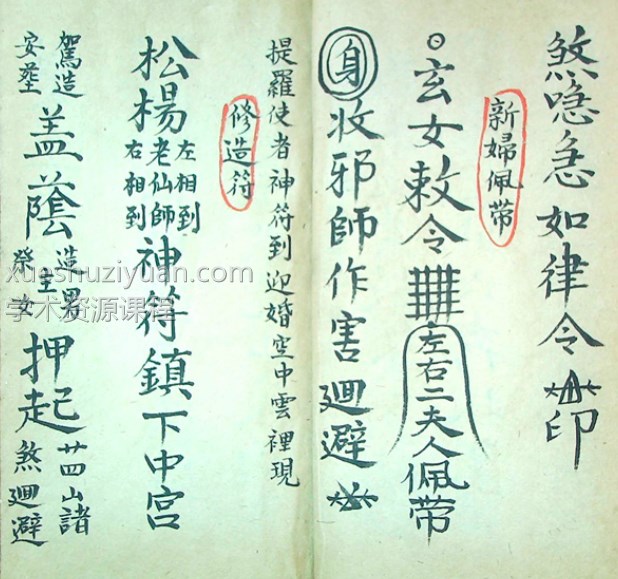 煞唸急如律令 印
新婦佩带
玄女敕令 左右二夫人佩带
身 收邪師作害廻避
提羅使者神符到迎婚空中雲裡現
修造符
松楊 左相到 老仙師 右相到 神符鎮下中宮
駕造 安葬 蓋蔭 造男 癸主女 押起 廿四山諸 煞廻避
xueshuziyuan.com
学术资源课程